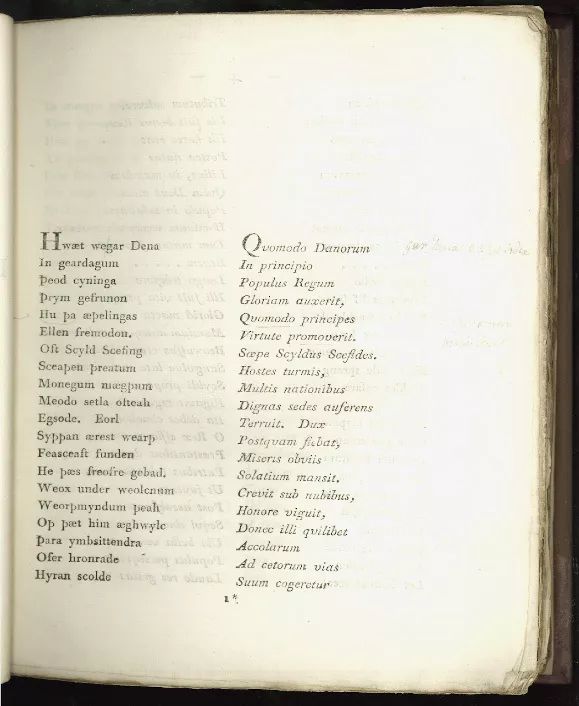 Hwæt wegar Dena
In geardagum
Þeod cyninga
Þrym gefrunon
Hu þa æþelingas
Ellen fremodon.
Oft Scyld Scefing
Sceaþen þreatum
Monegum mægþum
Meodo setla ofteah
Egsode. Eorl
Syþþan ærest wearþ
Feasceaft funden
He þæs freofre gebad.
Weox under weolcnum
Weorþmyndum þeah
Oþ þæt him æghwylc
Þara ymbsittendra
Ofer hronrade
Hyran scolde
Qvomodo Danorum
In principio
Populus Regum
Gloriam auxerit,
Qvomodo principes
Virtute promoverit.
Sæpe Scyldus Scefides.
Hostes turmis,
Multis nationibus
Dignas sedes auferens
Terruit. Dux
Postqvam fiebat,
Miseris obviis
Solatium mansit.
Crevit sub nubibus,
Honore viguit,
Donec illi qvilibet
Accolarum
Ad cetorum vias
Suum cogeretur
1*